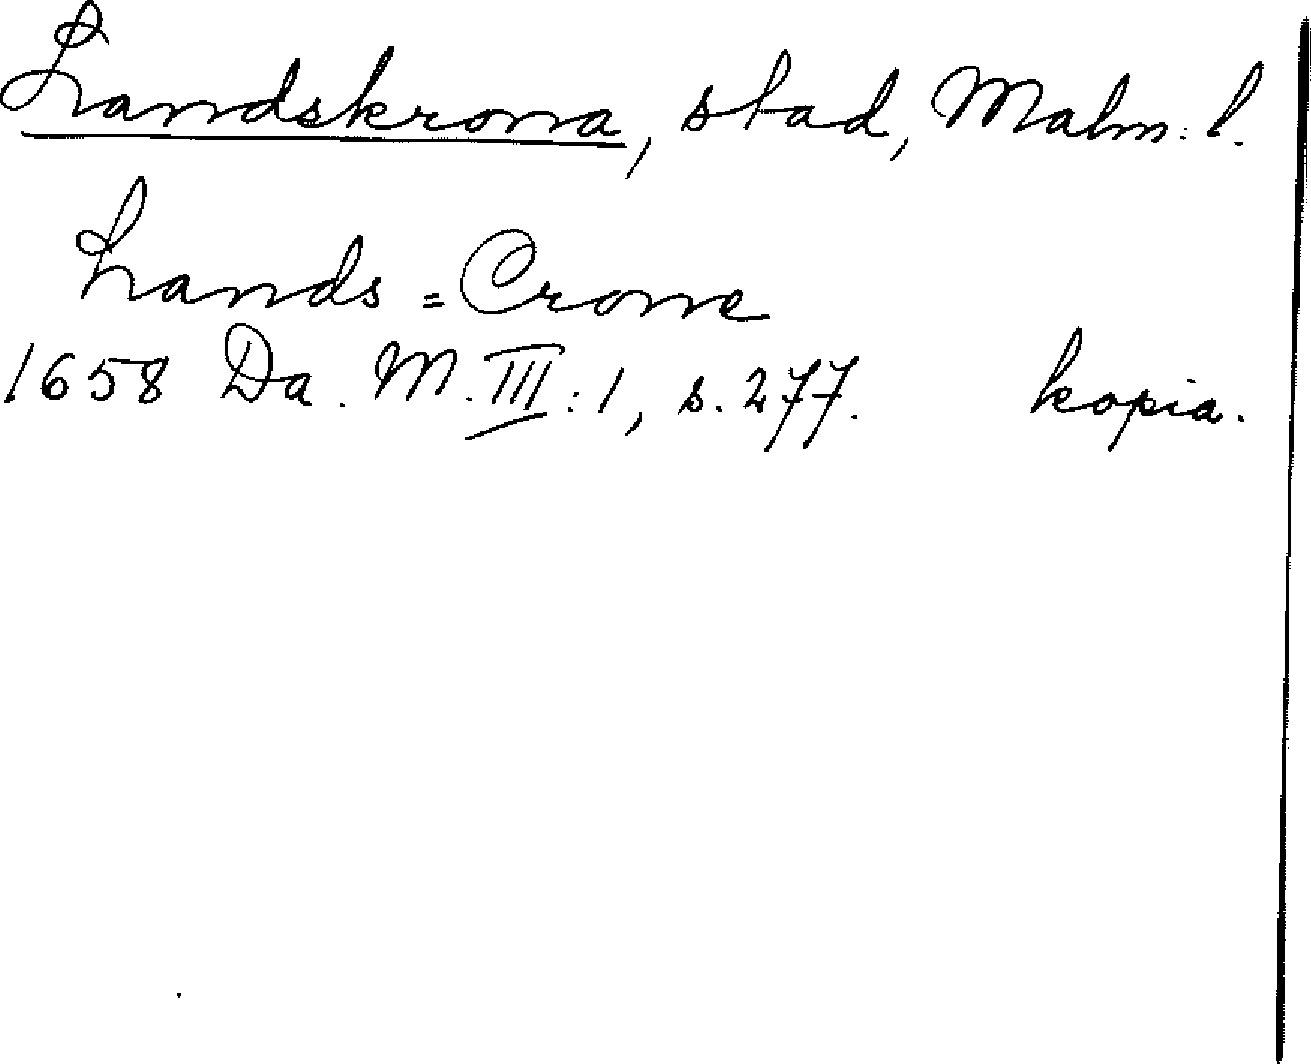 Landskrona, stad, Malm: l.
Lands=Crone
1658 Da. M. III:1, s. 277. kopia.